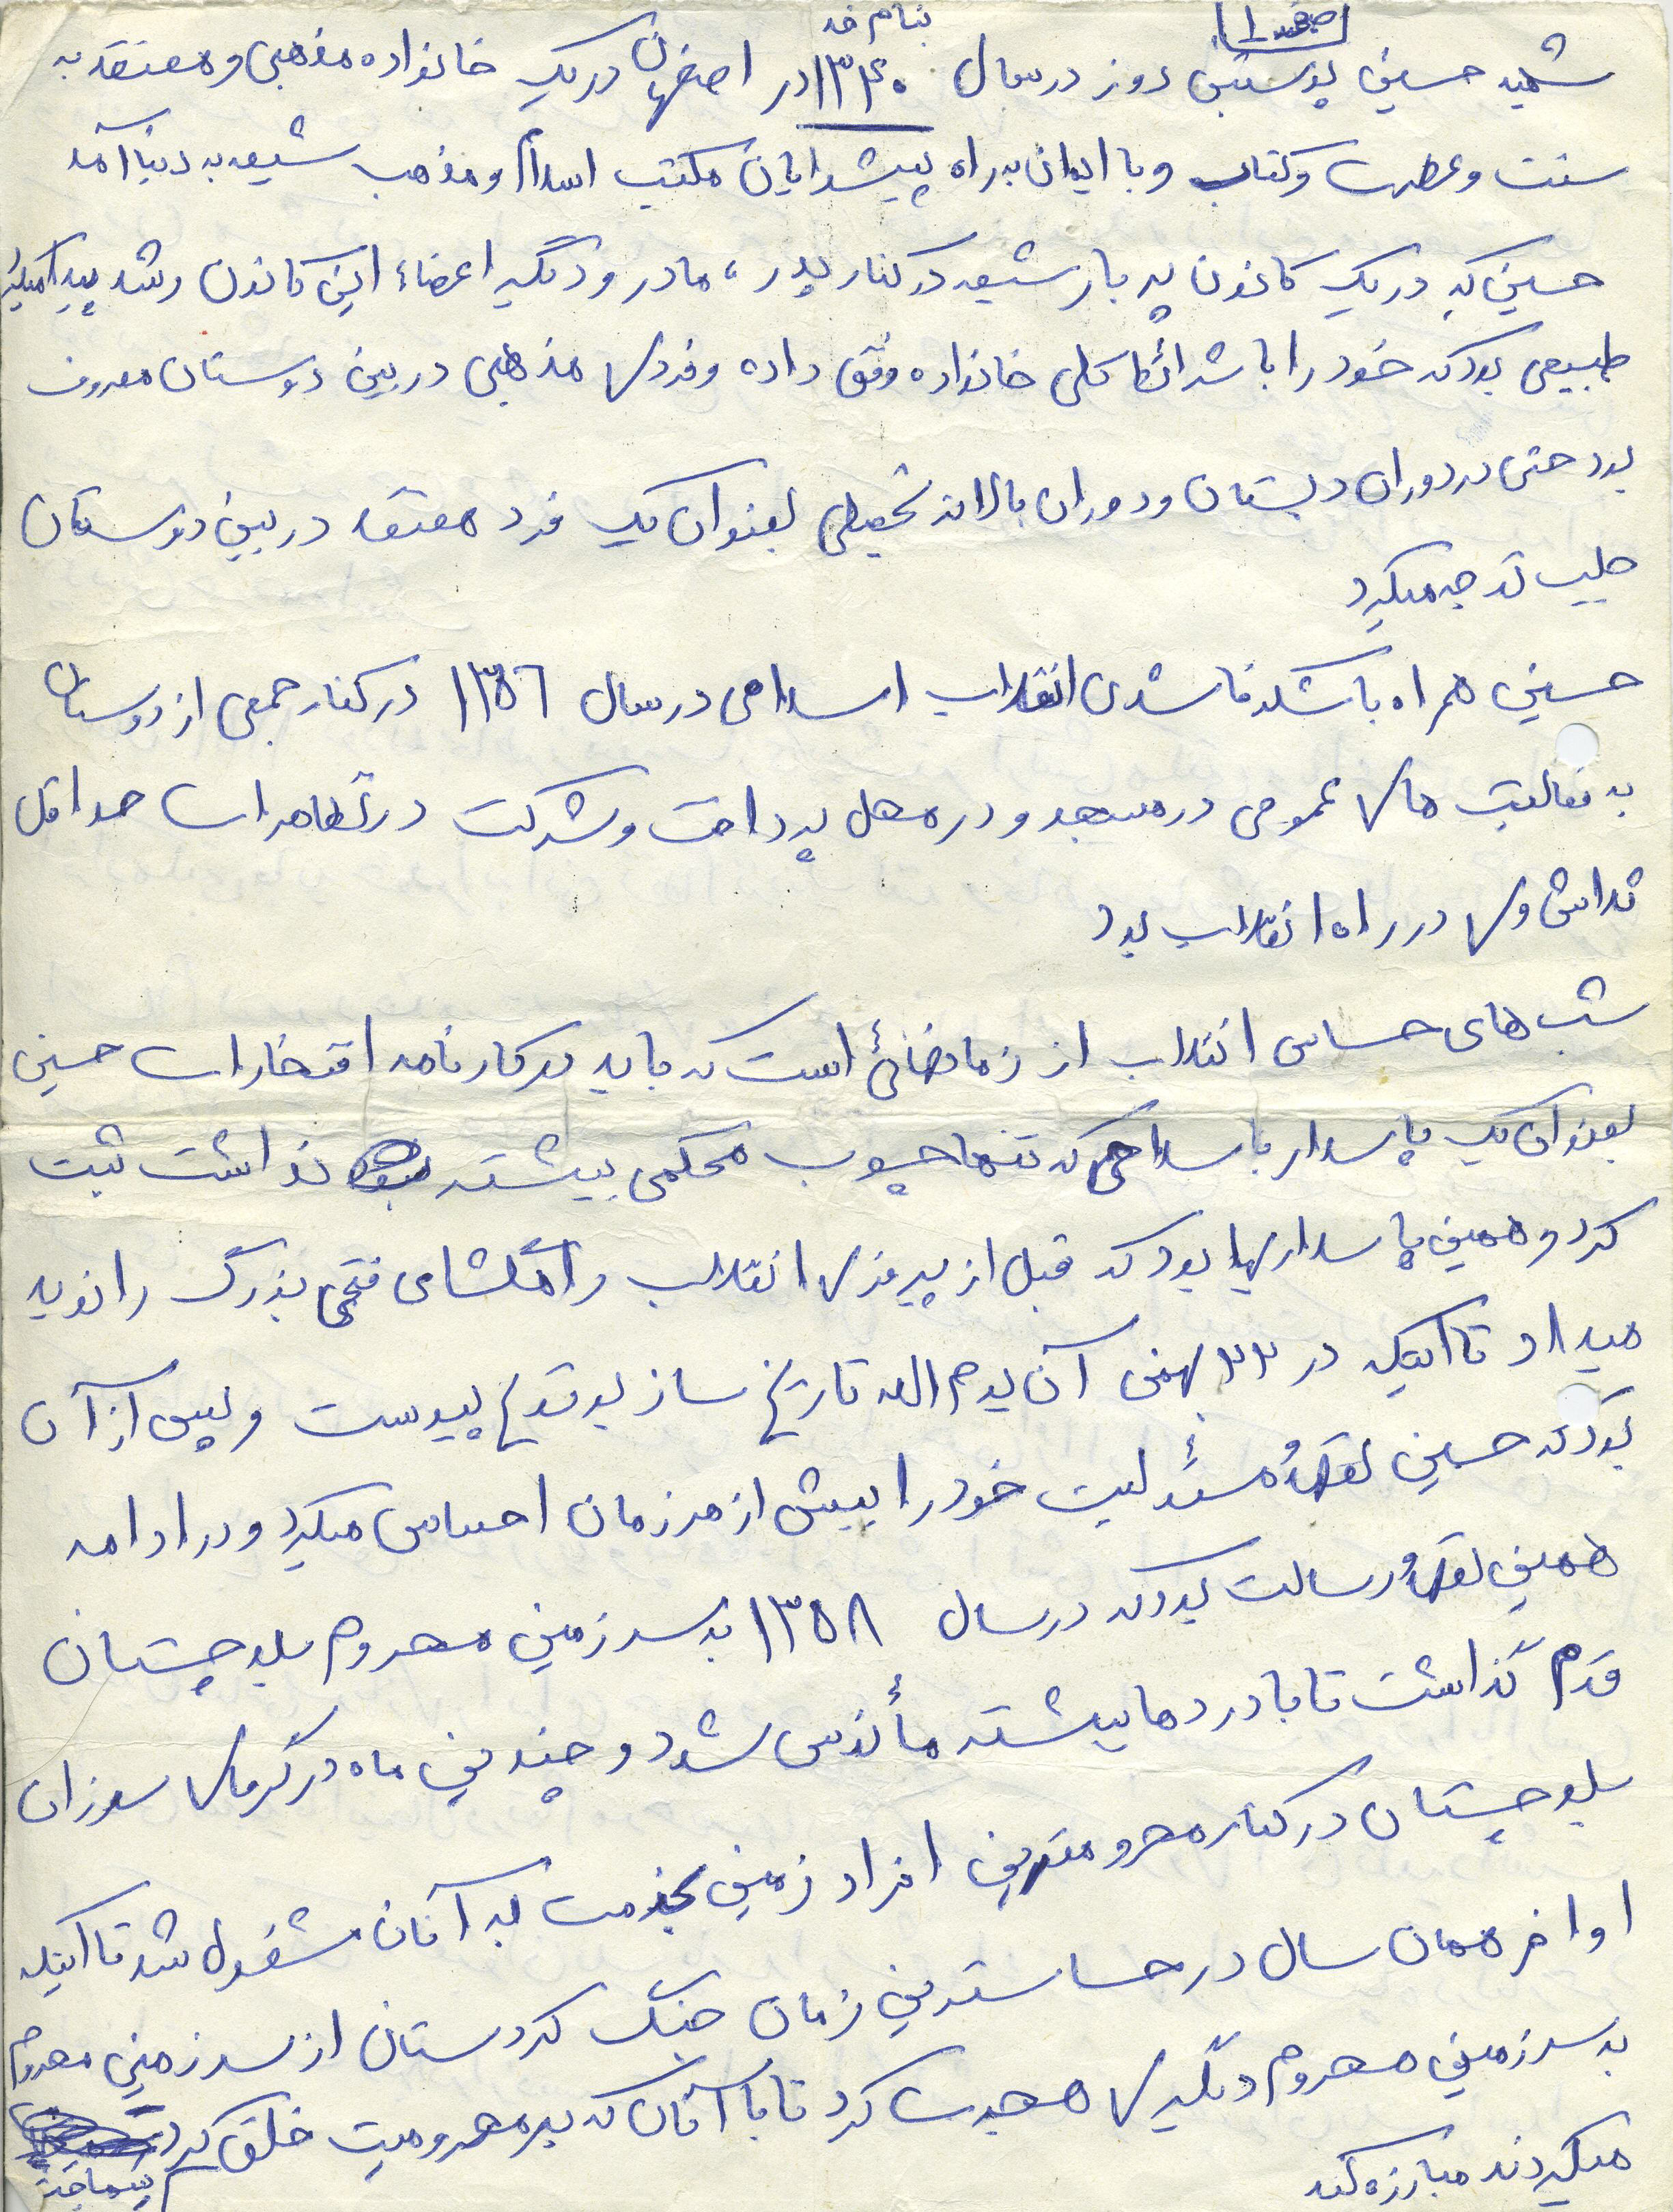 صفحه ۱
بنام خدا
شهید حسین پوستین دوز در سال ۱۳۴۰ در اصفهان در یک خانواده مذهبی و معتقد به
سنت و عطرت و کتاب و با ایمان به راه پیشوایان مکتب اسلام و مذهب شیعه به دنیا آمد
حسین که در یک کانون پر بار شیعه در کنار پدر، مادر و دیگر اعضاء این کانون رشد پیدا میکرد
طبیعی بود که خود را با شرائط کلی خانواده وفق داده و فردی مذهبی در بین دوستان معروف
بود حتی در دوران دبستان و دوران بالاتر تحصیلی بعنوان یک فرد معتقد در بین دوستان
جلب توجه میکرد
حسین همراه با شکوفا شدن انقلاب اسلامی در سال ۱۳۵۶ در کنار جمعی از دوستان
به فعالیت های عمومی در مسجد و در محل پرداخت و شرکت در تظاهرات حداقل
تلاش وی در راه انقلاب بود
شب های حساس انقلاب از زمانهائی است که باید در کارنامه افتخارات حسین
بعنوان یک پاسدار با سلاحی که تنها چوب محکمی بیشتر نداشت ثبت
کرد و همین پاسداریها بود که قبل از پیروزی انقلاب راهگشای فتحی بزرگ را نوید
میداد تا اینکه در ۲۲ بهمن آن یوم الله تاریخ ساز بوقوع پیوست و پس از آن
بود که حسین تعهد و مسئولیت خود را بیش از هر زمان احساس میکرد و در ادامه
همین تعهد و رسالت بود که در سال ۱۳۵۸ به سرزمین محروم بلوچستان
قدم گذاشت تا با دردها بیشتر مأنوس شود و چندین ماه در گرمای سوزان
بلوچستان در کنار محرومترین افراد زمین بخدمت به آنان مشغول شد تا اینکه
اواخر همان سال در حساسترین زمان جنگ کردستان از سرزمین محروم
به سرزمین محروم دیگری هجرت کرد تا با آنان که بر محرومیت خلق کرد
میکردند مبارزه کند